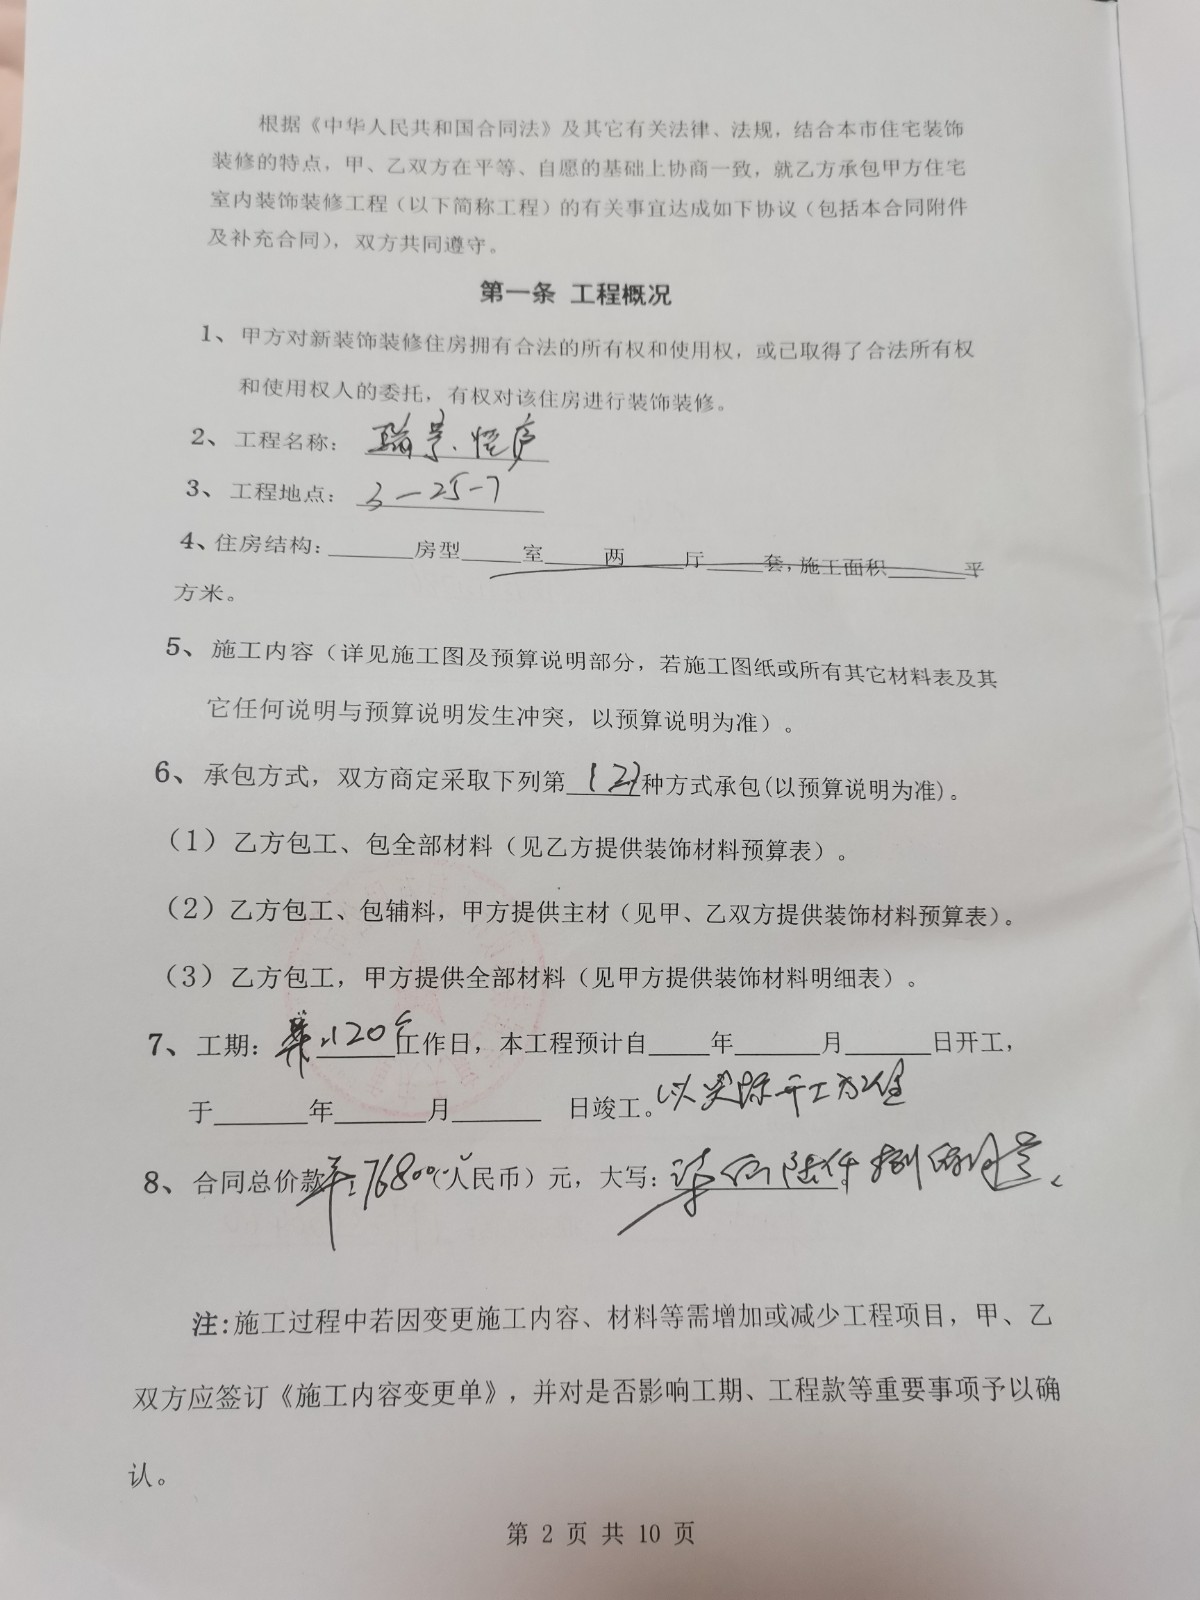 根据《中华人民共和国合同法》及其它有关法律、法规，结合本市住宅装饰
装修的特点，甲、乙双方在平等、自愿的基础上协商一致，就乙方承包甲方住宅
室内装饰装修工程（以下简称工程）的有关事宜达成如下协议（包括本合同附件
及补充合同），双方共同遵守。
第一条 工程概况
1、甲方对新装饰装修住房拥有合法的所有权和使用权，或已取得了合法所有权
和使用权人的委托，有权对该住房进行装饰装修。
2、工程名称：瑞景
3、工程地点：3-25-7
4、住房结构：______房型____室____两____厅____套，施工面积______平
方米。
5、施工内容（详见施工图及预算说明部分，若施工图纸或所有其它材料表及其
它任何说明与预算说明发生冲突，以预算说明为准）。
6、承包方式，双方商定采取下列第（2）种方式承包(以预算说明为准)。
（1）乙方包工、包全部材料（见乙方提供装饰材料预算表）。
（2）乙方包工、包辅料，甲方提供主材（见甲、乙双方提供装饰材料预算表）。
（3）乙方包工，甲方提供全部材料（见甲方提供装饰材料明细表）。
7、工期：120个工作日，本工程预计自____年____月____日开工，
于____年____月____ 日竣工。以实际开工为准
8、合同总价款76800（人民币）元，大写：柒万陆仟捌佰
注:施工过程中若因变更施工内容、材料等需增加或减少工程项目，甲、乙
双方应签订《施工内容变更单》，并对是否影响工期、工程款等重要事项予以确
认。
第 2 页 共 10 页